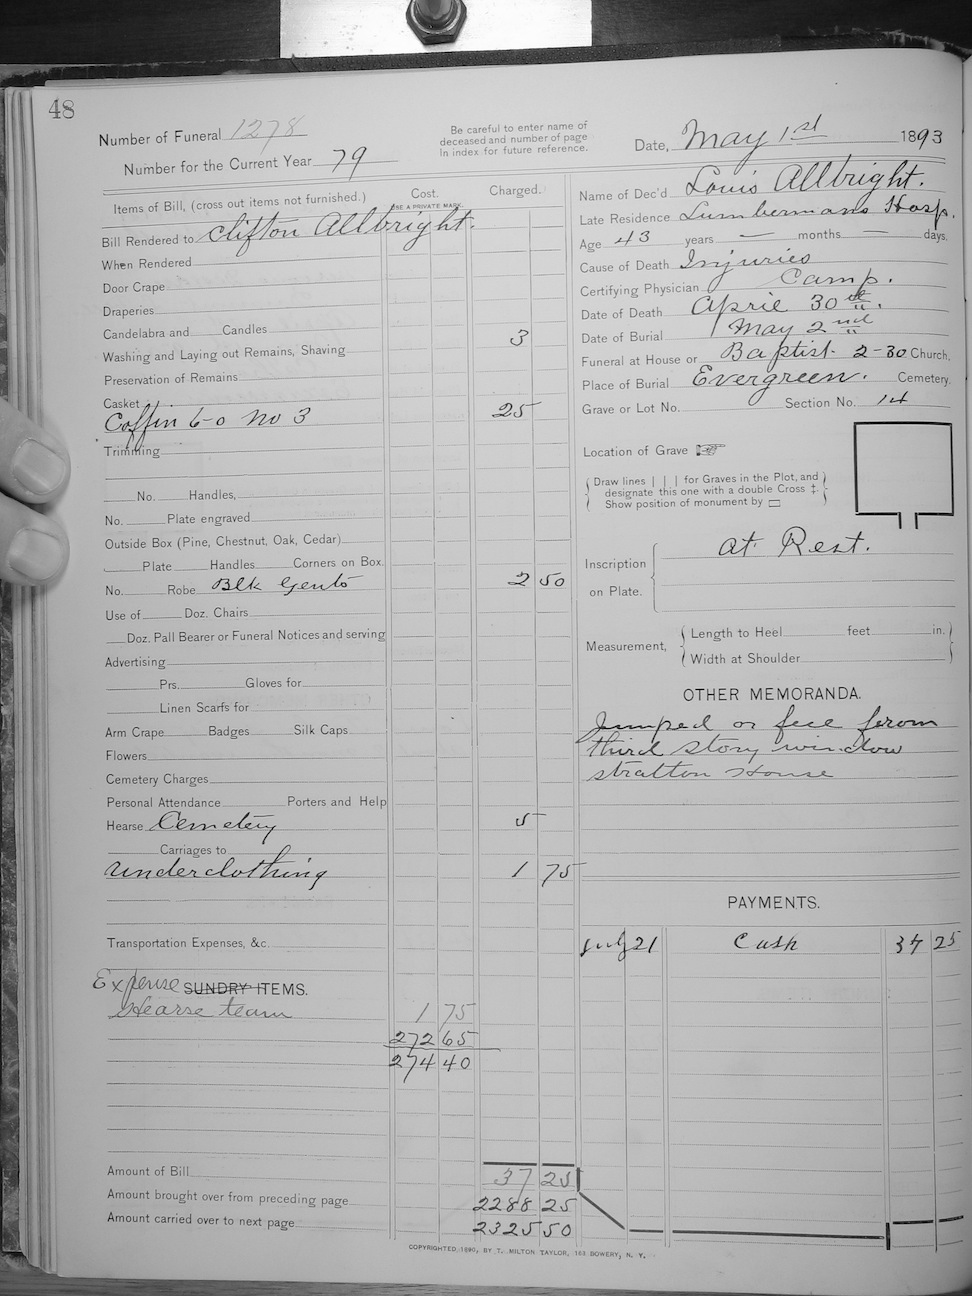 48
Number of Funeral 1278
Be careful to enter name of
deceased and number of page
in index for future reference.
Date, May 1st 1893
Number for the Current Year 79
Items of Bill, (cross out items not furnished.) Cost. Charged.
USE A PRIVATE MARK.
Bill Rendered to Clifton Allbright.
When Rendered
Door Crape
Draperies
Candelabra and Candles
Washing and Laying out Remains, Shaving 3
Preservation of Remains
Casket
Coffin 6-0 No 3 25
Trimming
No. Handles,
No. Plate engraved
Outside Box (Pine, Chestnut, Oak, Cedar)
Plate Handles Corners on Box.
No. Robe Blk Gents 2 50
Use of Doz. Chairs
Doz. Pall Bearer or Funeral Notices and serving
Advertising
Prs. Gloves for
Linen Scarfs for
Arm Crape Badges Silk Caps
Flowers
Cemetery Charges
Personal Attendance Porters and Help
Hearse Cemetery 5
Carriages to
Underclothing 1 75
Transportation Expenses, &c.
Expense SUNDRY ITEMS.
Hearse team 1 75
272 65
274 40
Amount of Bill 37 25
Amount brought over from preceding page 2288 25
Amount carried over to next page 2325 50
Name of Dec'd Louis Allbright.
Late Residence Lumbermans Hosp.
Age 43 years — months — days.
Cause of Death Injuries
Certifying Physician Camp.
Date of Death April 30th.
Date of Burial May 2nd
Funeral at House or Baptist. 2-30 Church.
Place of Burial Evergreen. Cemetery.
Grave or Lot No. Section No. 14
Location of Grave ☞
Draw lines | | | for Graves in the Plot, and
designate this one with a double Cross ‡.
Show position of monument by ▭
Inscription
on Plate.
At Rest.
Measurement,
Length to Heel feet in.
Width at Shoulder
OTHER MEMORANDA.
Jumped or feee from
third story window
Stratton House
PAYMENTS.
July 21 Cash 37 25
COPYRIGHTED 1890, BY T. MILTON TAYLOR, 163 BOWERY, N. Y.